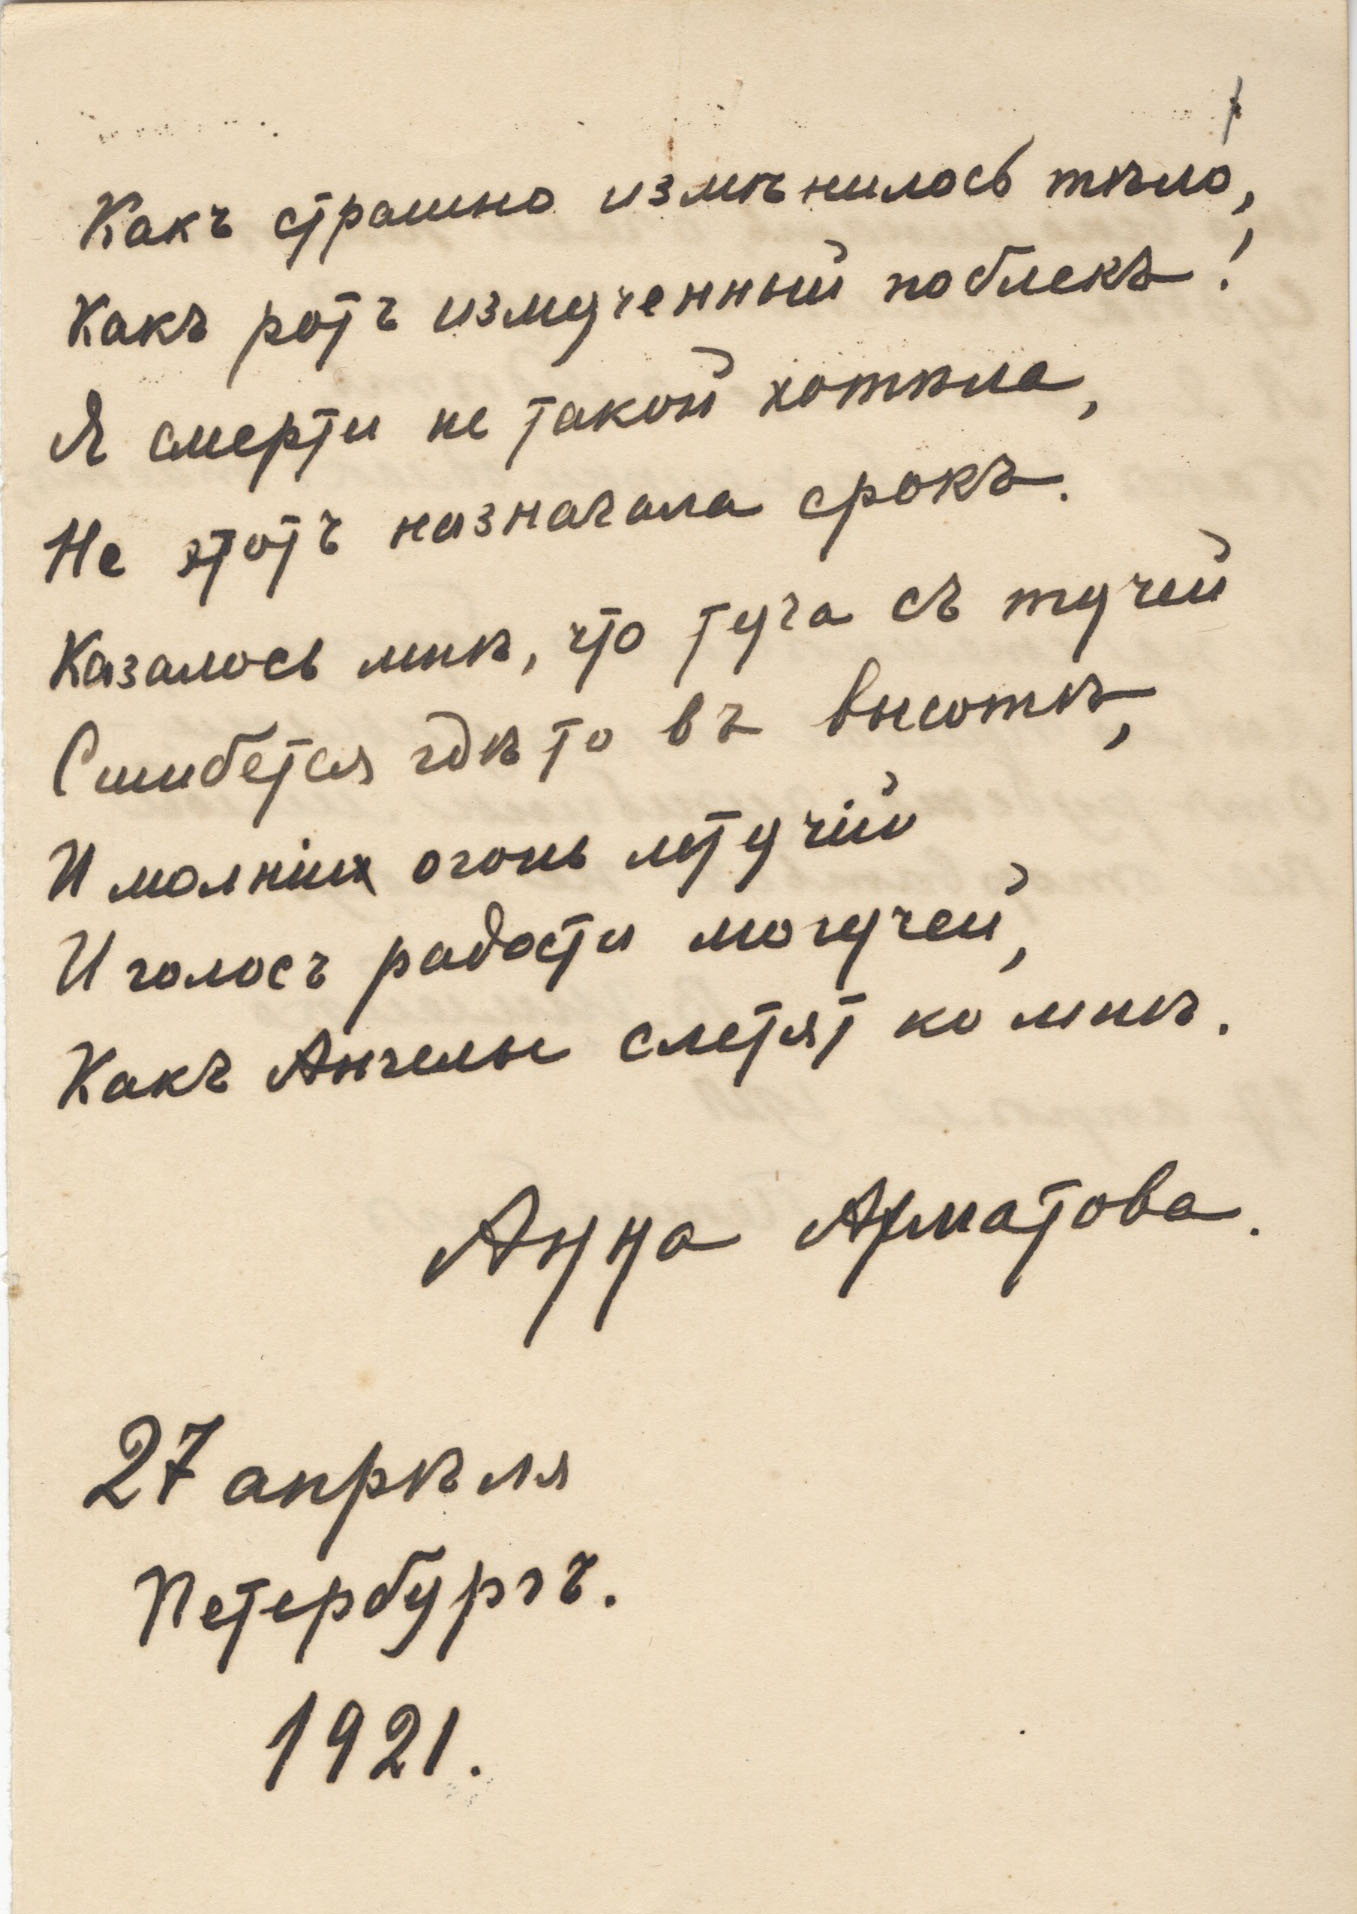 Какъ страшно измѣнилось тѣло,
Какъ ротъ измученный поблекъ!
Я смерти не такой хотѣла,
Не этотъ назначала срокъ.
Казалось мнѣ, что туча съ тучей
Сшибется гдѣ то въ высотѣ,
И молніи огонь летучій
И голосъ радости могучей,
Какъ Ангелы слетят ко мнѣ.
Анна Ахматова.
27 апрѣля
Петербургъ.
1921.